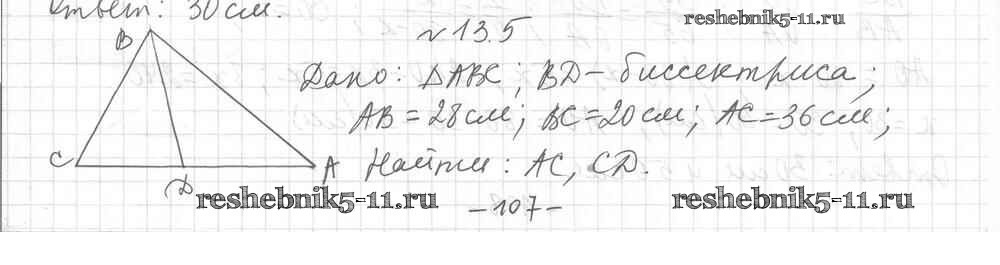 Ответ: 30 см.
reshebnik5-11.ru
N 13.5
B
Дано: △ABC; BD - биссектриса;
AB = 28 см; BC = 20 см; AC = 36 см;
C
D
A
Найти: AC, CD.
reshebnik5-11.ru
- 107 -
reshebnik5-11.ru